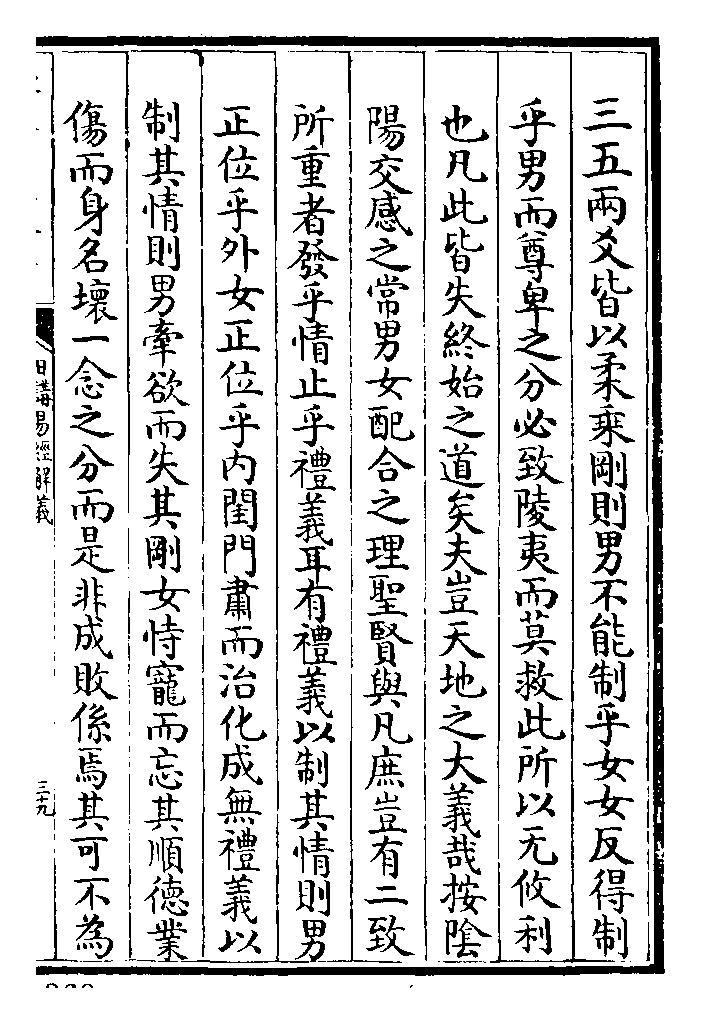 三五兩爻皆以柔乘剛則男不能制乎女女反得制
乎男而尊卑之分必致陵夷而莫救此所以无攸利
也凡此皆失終始之道矣夫豈天地之大義哉按陰
陽交感之常男女配合之理聖賢與凡庶豈有二致
所重者發乎情止乎禮義耳有禮義以制其情則男
正位乎外女正位乎内閨門肅而治化成無禮義以
制其情則男牽欲而失其剛女恃寵而忘其順德業
傷而身名壞一念之分而是非成敗係焉其可不為
日講易經解義
三九